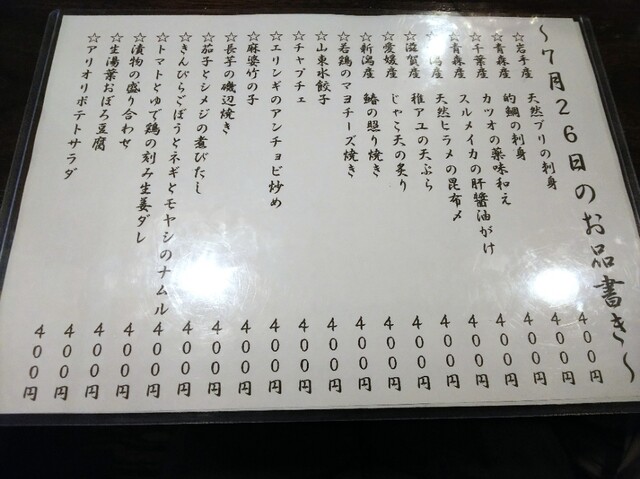 ～7月26日のお品書き～
☆岩手産 天然ブリの刺身 400円
☆青森産 的鯛の刺身 400円
☆千葉産 カツオの薬味和え 400円
☆青森産 スルメイカの肝醤油がけ 400円
☆新潟産 天然ヒラメの昆布〆 400円
☆滋賀産 稚アユの天ぷら 400円
☆愛媛産 じゃこ天の炙り 400円
☆新潟産 鰆の照り焼き 400円
☆若鶏のマヨチーズ焼き 400円
☆山東水餃子 400円
☆チャプチェ 400円
☆エリンギのアンチョビ炒め 400円
☆麻婆竹の子 400円
☆長芋の磯辺焼き 400円
☆茄子とシメジの煮びたし 400円
☆きんぴらごぼうとネギとモヤシのナムル 400円
☆トマトとゆで鶏の刻み生姜ダレ 400円
☆漬物の盛り合わせ 400円
☆生湯葉おぼろ豆腐 400円
☆アリオリポテトサラダ 400円